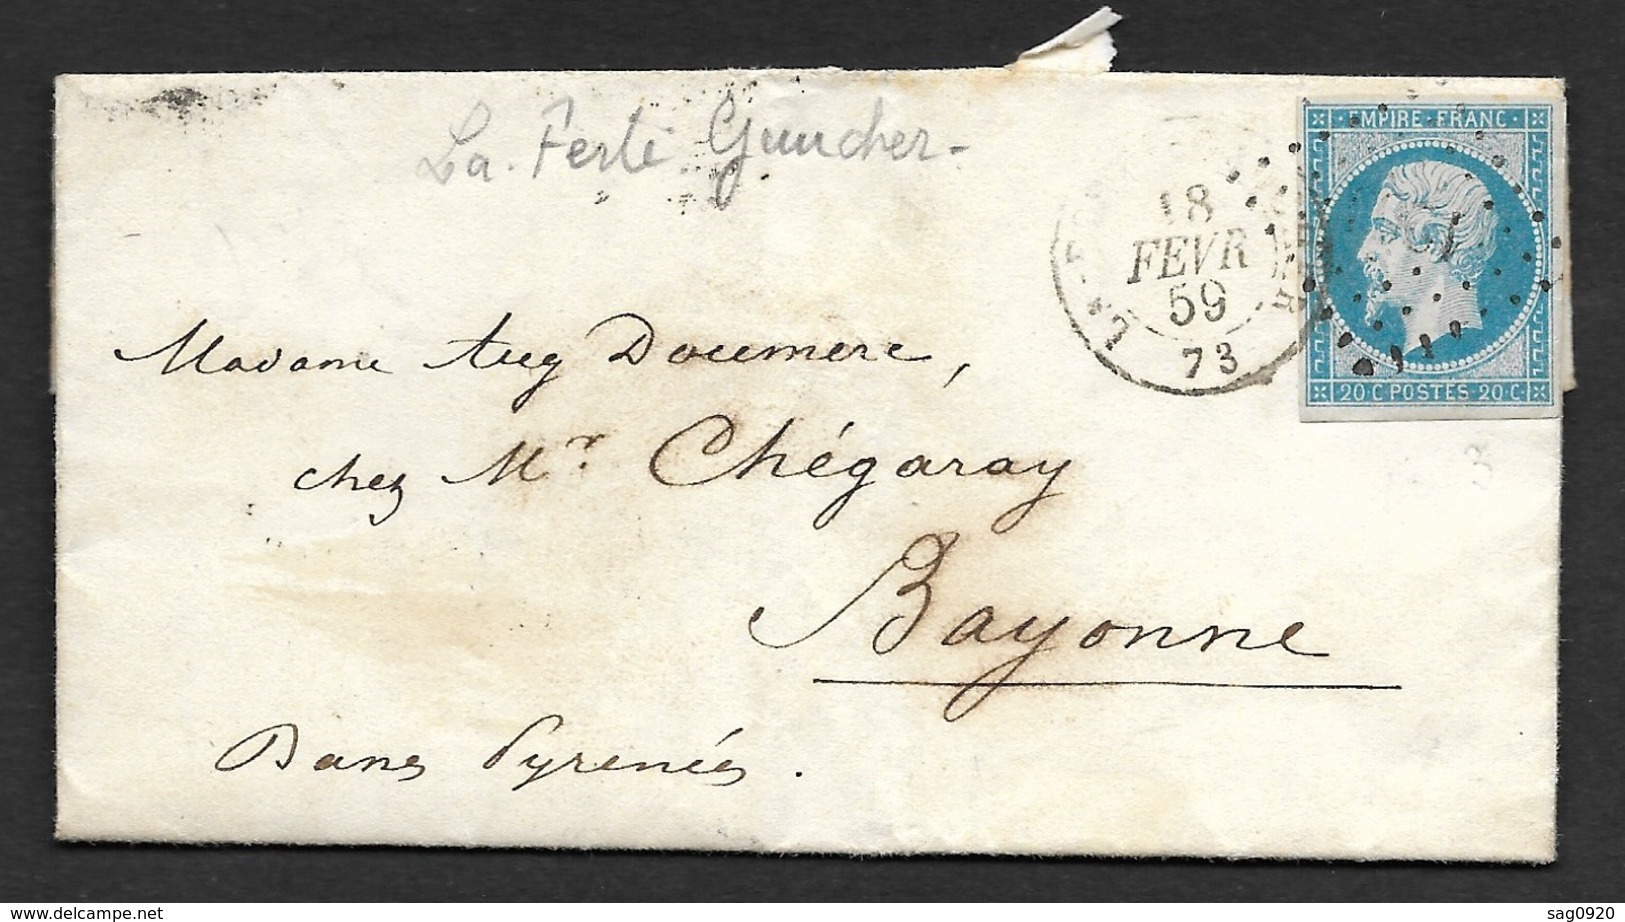 La. Ferté Gaucher -
EMPIRE · FRANC ·
18
FEVR
59
73
20 · C POSTES · 20 · C ·
Madame Aug Doumerc,
chez Mr. Chégaray
Bayonne
3
Bases Pyrenées.
delcampe.net
sag0920